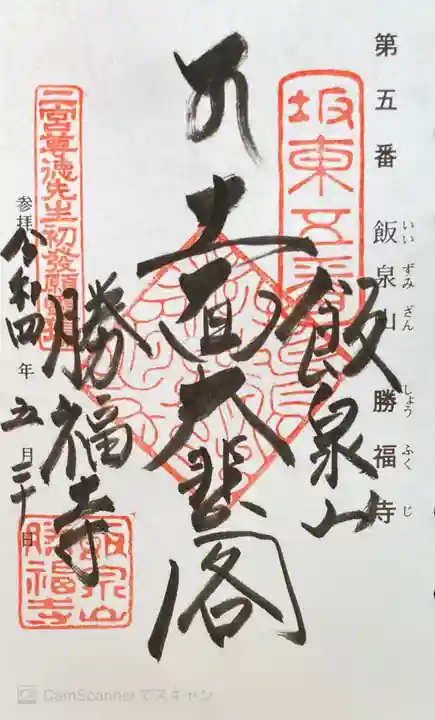 第五番 飯泉山 勝福寺
いいずみざん しょうふくじ
坂東五番
飯泉山
大悲閣
二宮尊徳先生初發願
勝福寺
参拝 令和四年五月三十日
飯泉山
勝福寺
CamScannerでスキャン